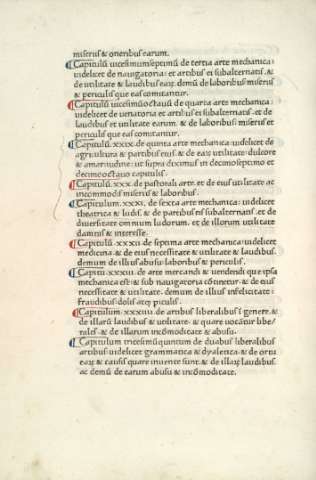 miseriis & oneribus earum.
Capitulũ uicesimumseptimũ de tertia arte mechanica:
uidelicet de nauigatoria: et artibus ei subalternatis. &
de utilitate & laudibus eaꝝ. demũ de laboribus miseriis
& periculis que eas comitantur.
Capitulũ uicesimũoctauũ de quarta arte mechanica:
uidelicet de uenatoria et artibus ei subalternatis. et de
laudibus et utilitate earum. & de laboribus miseriis et
periculis que eas comitantur.
Capitulũ .XXIX. de quinta arte mechanica: uidelicet de
agricultura & partibus eius & de eaꝝ utilitate: dulcore
& amaritudine: ut supra diximus in decimoseptimo et
decimooctauo capitulis.
Capitulũ .XXX. de pastorali arte. et de eius utilitate ac
incommodis miseriis & laboribus.
Capitulum .XXXI. de sexta arte mechanica: uidelicet
theatrica & ludis. & de partibus ei subalternatis. et de
diuersitate omnium ludorum. et de illorum utilitate
damnis & interesse.
Capitulũ .XXXII. de septima arte mechanica: uidelicet
medicina. & de eius necessitate & utilitate & laudibus.
demum de illius abusu laboribus & periculis.
Capitu .XXXIII. de arte mercandi & uendendi que ipsa
mechanica est: & sub nauigatoria cõtinetur. & de eius
necessitate & utilitate. demum de illius infelicitate:
fraudibus dolis atq; piculis.
Capitulum .XXXIIII. de artibus liberalibus ĩ genere. &
de illarũ laudibus & utilitate. & quare uocãtur libe/
rales. & de illarum incõmoditate & abusu.
Capitulum tricesimũquintum de duabus liberalibus
artibus: uidelicet grammatica & dyaletica. & de ortu
eaꝝ & causis quare inuente sunt. & de illaꝝ laudibus.
ac demũ de earum abusu & incõmoditate.